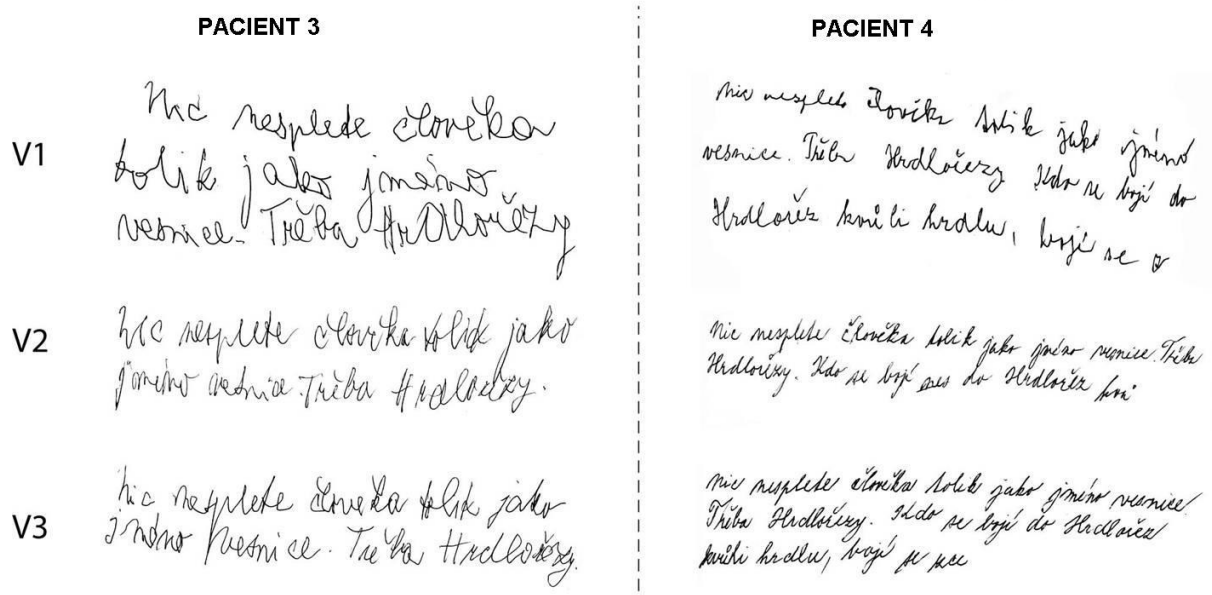 PACIENT 3
V1
Nic nesplete člověka
tolik jako jméno
vesnice. Třeba Hrdlořezy
V2
Nic nesplete člověka tolik jako
jméno vesnice. Třeba Hrdlořezy.
V3
Nic nesplete člověka tolik jako
jméno vesnice. Třeba Hrdlořezy.
PACIENT 4
Nic nesplete člověka tolik jako jméno
vesnice. Třeba Hrdlořezy Kdo se bojí do
Hrdlořez kvůli hrdlu, bojí se
Nic nesplete člověka tolik jako jméno vesnice. Třeba
Hrdlořezy. Kdo se bojí do Hrdlořez
Nic nesplete člověka tolik jako jméno vesnice
Třeba Hrdlořezy. Kdo se bojí do Hrdlořez
kvůli hrdlu, bojí se